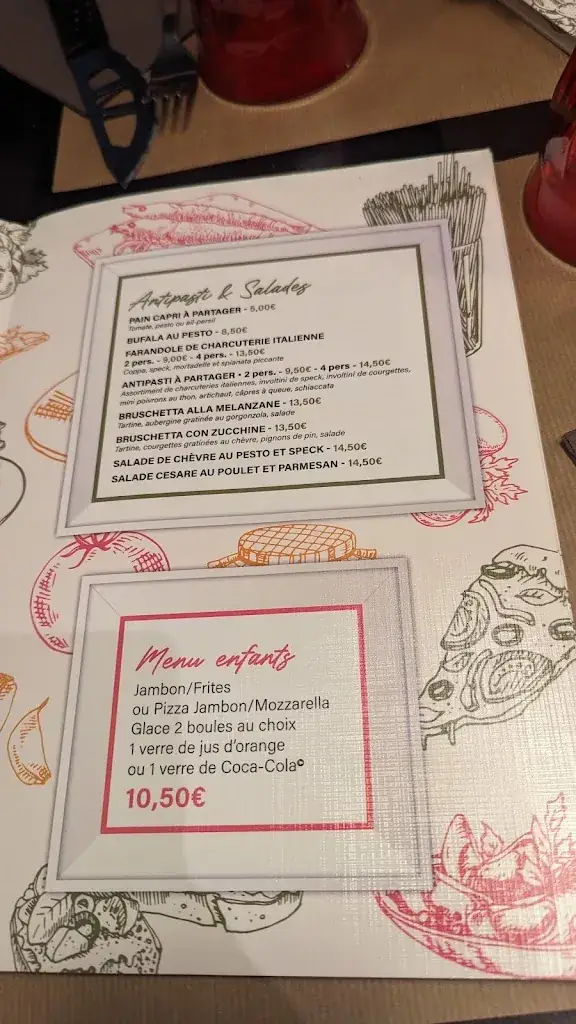 Antipasti & Salades
PAIN CAPRI À PARTAGER - 5,00€
Tomate, pesto ou ail-persil
BUFALA AU PESTO - 8,50€
FARANDOLE DE CHARCUTERIE ITALIENNE
2 pers. - 9,00€ - 4 pers. - 13,50€
Coppa, speck, mortadelle et spianata piccante
ANTIPASTI À PARTAGER • 2 pers. - 9,50€ - 4 pers - 14,50€
Assortiment de charcuteries italiennes, involtini de speck, involtini de courgettes,
mini poivrons au thon, artichaut, câpres à queue, schiaccata
BRUSCHETTA ALLA MELANZANE - 13,50€
Tartine, aubergine gratinée au gorgonzola, salade
BRUSCHETTA CON ZUCCHINE - 13,50€
Tartine, courgettes gratinées au chèvre, pignons de pin, salade
SALADE DE CHÈVRE AU PESTO ET SPECK - 14,50€
SALADE CESARE AU POULET ET PARMESAN - 14,50€
Menu enfants
Jambon/Frites
ou Pizza Jambon/Mozzarella
Glace 2 boules au choix
1 verre de jus d'orange
ou 1 verre de Coca-Cola©
10,50€